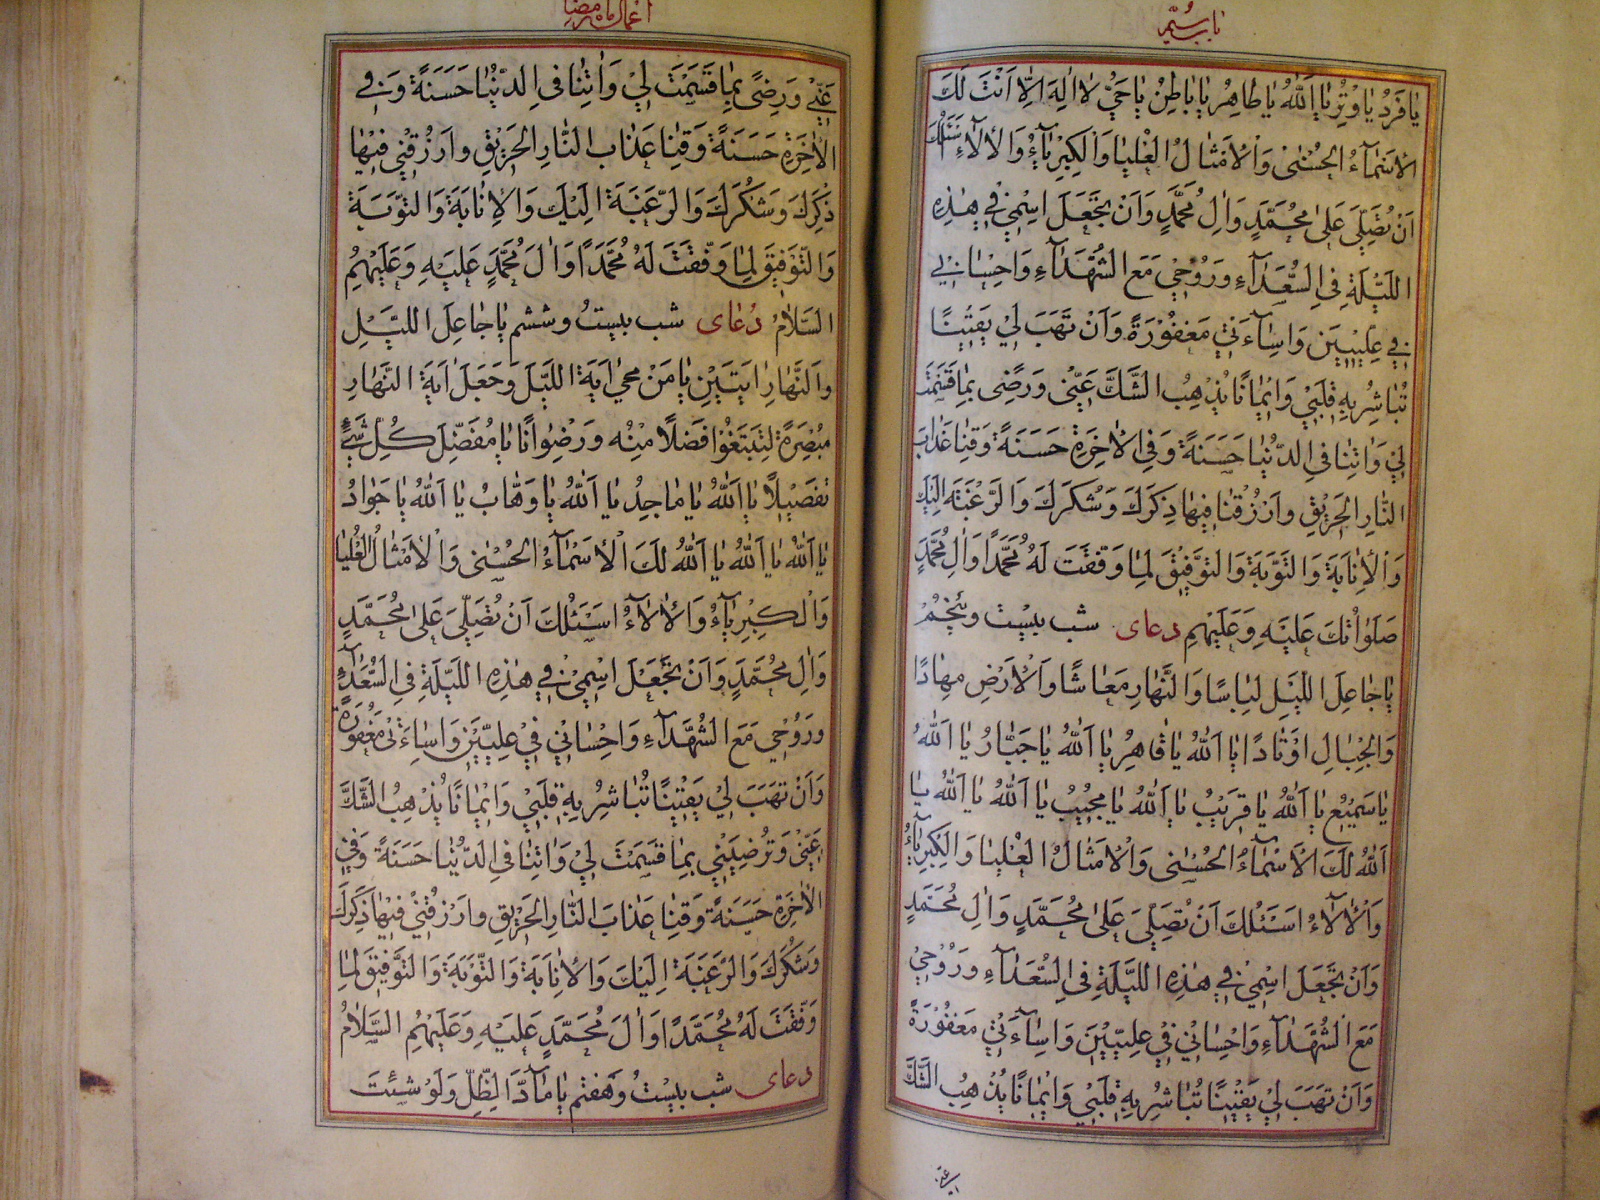 باب سیّم
یٰا فَرْدُ یٰا وِتْرُ یٰا اَللّٰهُ یٰا ظاهِرُ یٰا بٰاطِنُ یٰا حَیُّ لٰا اِلٰهَ اِلّٰا اَنْتَ لَكَ
الْاَسْمٰآءُ الْحُسْنٰی وَالْاَمْثٰالُ الْعُلْیٰا وَالْكِبْرِیٰآءُ وَالْاٰلٰآءُ اَسْئَلُكَ
اَنْ تُصَلِّیَ عَلیٰ مُحَمَّدٍ وَاٰلِ مُحَمَّدٍ وَاَنْ تَجْعَلَ اسْمِیْ فِی هٰذِهِ
اللَّیْلَةِ فِی السُّعَدٰآءِ وَرُوْحِیْ مَعَ الشُّهَدٰآءِ وَاِحْسٰانِیْ
فِی عِلِّیّٖیْنَ وَاِسٰآءَتِیْ مَغْفُوْرَةً وَاَنْ تَهَبَ لِیْ یَقٖیْنًا
تُبٰاشِرُ بِهِ قَلْبِیْ وَاٖیْمٰانًا یُذْهِبُ الشَّكَّ عَنِّیْ وَرِضًی بِمٰا قَسَمْتَ
لِیْ وَاٰتِنٰا فِی الدُّنْیٰا حَسَنَةً وَفِی الْاٰخِرَةِ حَسَنَةً وَقِنٰا عَذٰابَ
النّٰارِ الْحَرٖیْقِ وَارْزُقْنٰا فٖیْهٰا ذِكْرَكَ وَشُكْرَكَ وَالرَّغْبَةَ اِلَیْكَ
وَالْاِنٰابَةَ وَالتَّوْبَةَ وَالتَّوْفٖیْقَ لِمٰا وَفَّقْتَ لَهُ مُحَمَّدًا وَاٰلِ مُحَمَّدٍ
صَلَوٰاتُكَ عَلَیْهِ وَعَلَیْهِمْ دعای شب بیست وپنجم
یٰا جٰاعِلَ اللَّیْلِ لِبٰاسًا وَالنَّهٰارِ مَعٰاشًا وَالْاَرْضِ مِهٰادًا
وَالْجِبٰالِ اَوْتٰادًا یٰا اَللّٰهُ یٰا قٰاهِرُ یٰا اَللّٰهُ یٰا جَبّٰارُ یٰا اَللّٰهُ
یٰا سَمٖیْعُ یٰا اَللّٰهُ یٰا قَرٖیْبُ یٰا اَللّٰهُ یٰا مُجٖیْبُ یٰا اَللّٰهُ یٰا اَللّٰهُ یٰا
اَللّٰهُ لَكَ الْاَسْمٰآءُ الْحُسْنٰی وَالْاَمْثٰالُ الْعُلْیٰا وَالْكِبْرِیٰآءُ
وَالْاٰلٰآءُ اَسْئَلُكَ اَنْ تُصَلِّیَ عَلیٰ مُحَمَّدٍ وَاٰلِ مُحَمَّدٍ
وَاَنْ تَجْعَلَ اسْمِیْ فِی هٰذِهِ اللَّیْلَةِ فِی السُّعَدٰآءِ وَرُوْحِیْ
مَعَ الشُّهَدٰآءِ وَاِحْسٰانِیْ فِیْ عِلِّیّٖیْنَ وَاِسٰآءَتِیْ مَغْفُوْرَةً
وَاَنْ تَهَبَ لِیْ یَقٖیْنًا تُبٰاشِرُ بِهِ قَلْبِیْ وَاٖیْمٰانًا یُذْهِبُ الشَّكَّ
اعمال ماه رمضان
عَنِّیْ وَرِضًی بِمٰا قَسَمْتَ لِیْ وَاٰتِنٰا فِی الدُّنْیٰا حَسَنَةً وَفِی
الْاٰخِرَةِ حَسَنَةً وَقِنٰا عَذٰابَ النّٰارِ الْحَرٖیْقِ وارْزُقْنِیْ فٖیْهٰا
ذِكْرَكَ وَشُكْرَكَ وَالرَّغْبَةَ اِلَیْكَ وَالْاِنٰابَةَ وَالتَّوْبَةَ
وَالتَّوْفٖیْقَ لِمٰا وَفَّقْتَ لَهُ مُحَمَّدًا وَاٰلَ مُحَمَّدٍ عَلَیْهِ وَعَلَیْهِمُ
السَّلٰامُ دُعٰای شب بیستُ وششم یٰا جٰاعِلَ اللَّیْلِ
وَالنَّهٰارِ اٰیَتَیْنِ یٰا مَنْ مَحیٰ اٰیَةَ اللَّیْلِ وَجَعَلَ اٰیَةَ النَّهٰارِ
مُبْصِرَةً لِتَبْتَغُوْا فَضْلًا مِنْهُ وَرِضْوٰانًا یٰا مُفَصِّلَ كُلِّ شَیْءٍ
تَفْصٖیْلًا یٰا اَللّٰهُ یٰا مٰاجِدُ یٰا اَللّٰهُ یٰا وَهّٰابُ یٰا اَللّٰهُ یٰا جَوٰادُ
یٰا اَللّٰهُ یٰا اَللّٰهُ یٰا اَللّٰهُ لَكَ الْاَسْمٰآءُ الْحُسْنٰی وَالْاَمْثٰالُ الْعُلْیٰا
وَالْكِبْرِیٰآءُ وَالْاٰلٰآءُ اَسْئَلُكَ اَنْ تُصَلِّیَ عَلیٰ مُحَمَّدٍ
وَاٰلِ مُحَمَّدٍ وَاَنْ تَجْعَلَ اسْمِیْ فِی هٰذِهِ اللَّیْلَةِ فِی السُّعَدٰآءِ
وَرُوْحِی مَعَ الشُّهَدٰآءِ وَاِحْسٰانِیْ فِیْ عِلِّیّٖیْنَ وَاِسٰاءَتِیْ مَغْفُوْرَةً
وَاَنْ تَهَبَ لِیْ یَقٖیْنًا تُبٰاشِرُ بِهِ قَلْبِیْ وَاٖیْمٰانًا یُذْهِبُ الشَّكَّ
عَنِّیْ وَتُرْضِیَنِیْ بِمٰا قَسَمْتَ لِیْ وَاٰتِنٰا فِی الدُّنْیٰا حَسَنَةً وَفِی
الْاٰخِرَةِ حَسَنَةً وَقِنٰا عَذٰابَ النّٰارِ الْحَرٖیْقِ وارْزُقْنِیْ فٖیْهٰا ذِكْرَكَ
وَشُكْرَكَ وَالرَّغْبَةَ اِلَیْكَ وَالْاِنٰابَةَ وَالتَّوْبَةَ وَالتَّوْفٖیْقَ لِمٰا
وَفَّقْتَ لَهُ مُحَمَّدًا وَاٰلَ مُحَمَّدٍ عَلَیْهِ وَعَلَیْهِمُ السَّلٰامُ
دعای شب بیستُ وهفتم یٰا مٰآدَّ الظِّلِّ وَلَوْ شِئْتَ